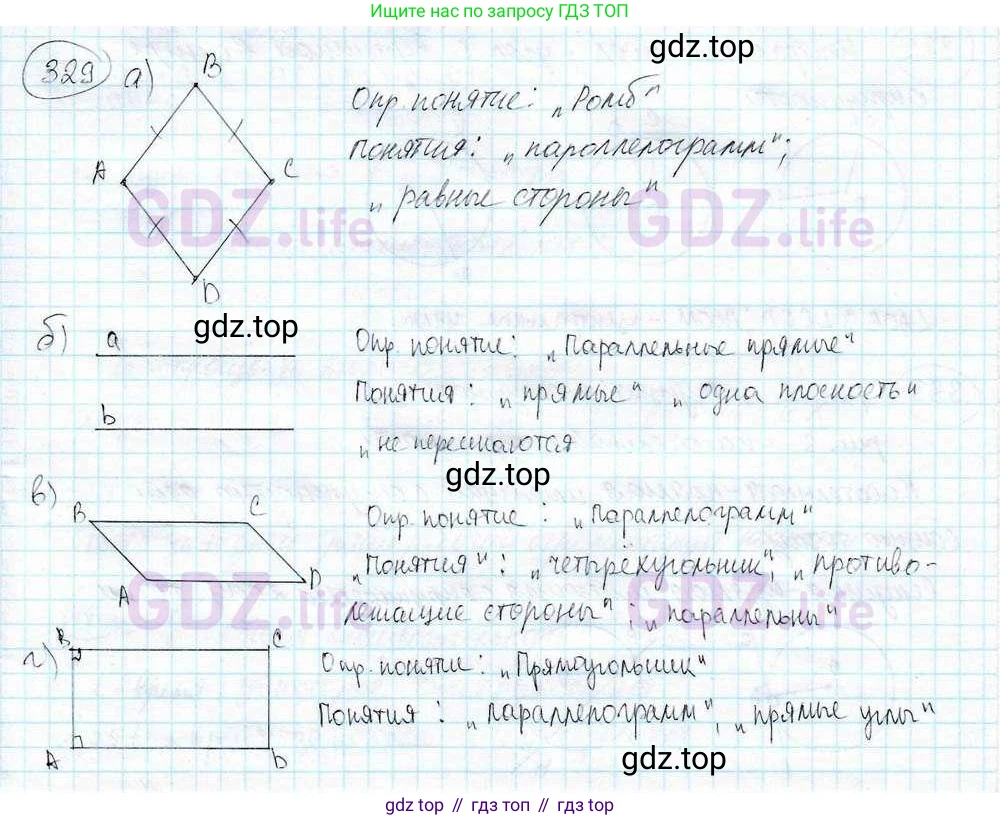 Ищите нас по запросу ГДЗ ТОП
gdz.top
329 а) B
A C
D
Опр. понятие: „Ромб"
Понятия: „пароллелограмм";
„равные стороны"
GDZ.life GDZ.life
gdz.top
б) a
b
Опр. понятие: „Параллельные прямые"
Понятия: „прямые" „одна плоскость"
„не пересикаются
gdz.top
в) B C
A D
Опр. понятие: „Параллелограмм"
„Понятия": „четырёхугольник", „противо-
лежащие стороны"; „параллельны"
GDZ.life GDZ.life
г) B C
A D
Опр. понятие: „Прямоугольник"
Понятия: „параллелограмм", „прямые углы"
gdz.top
gdz.top // гдз топ // гдз.top